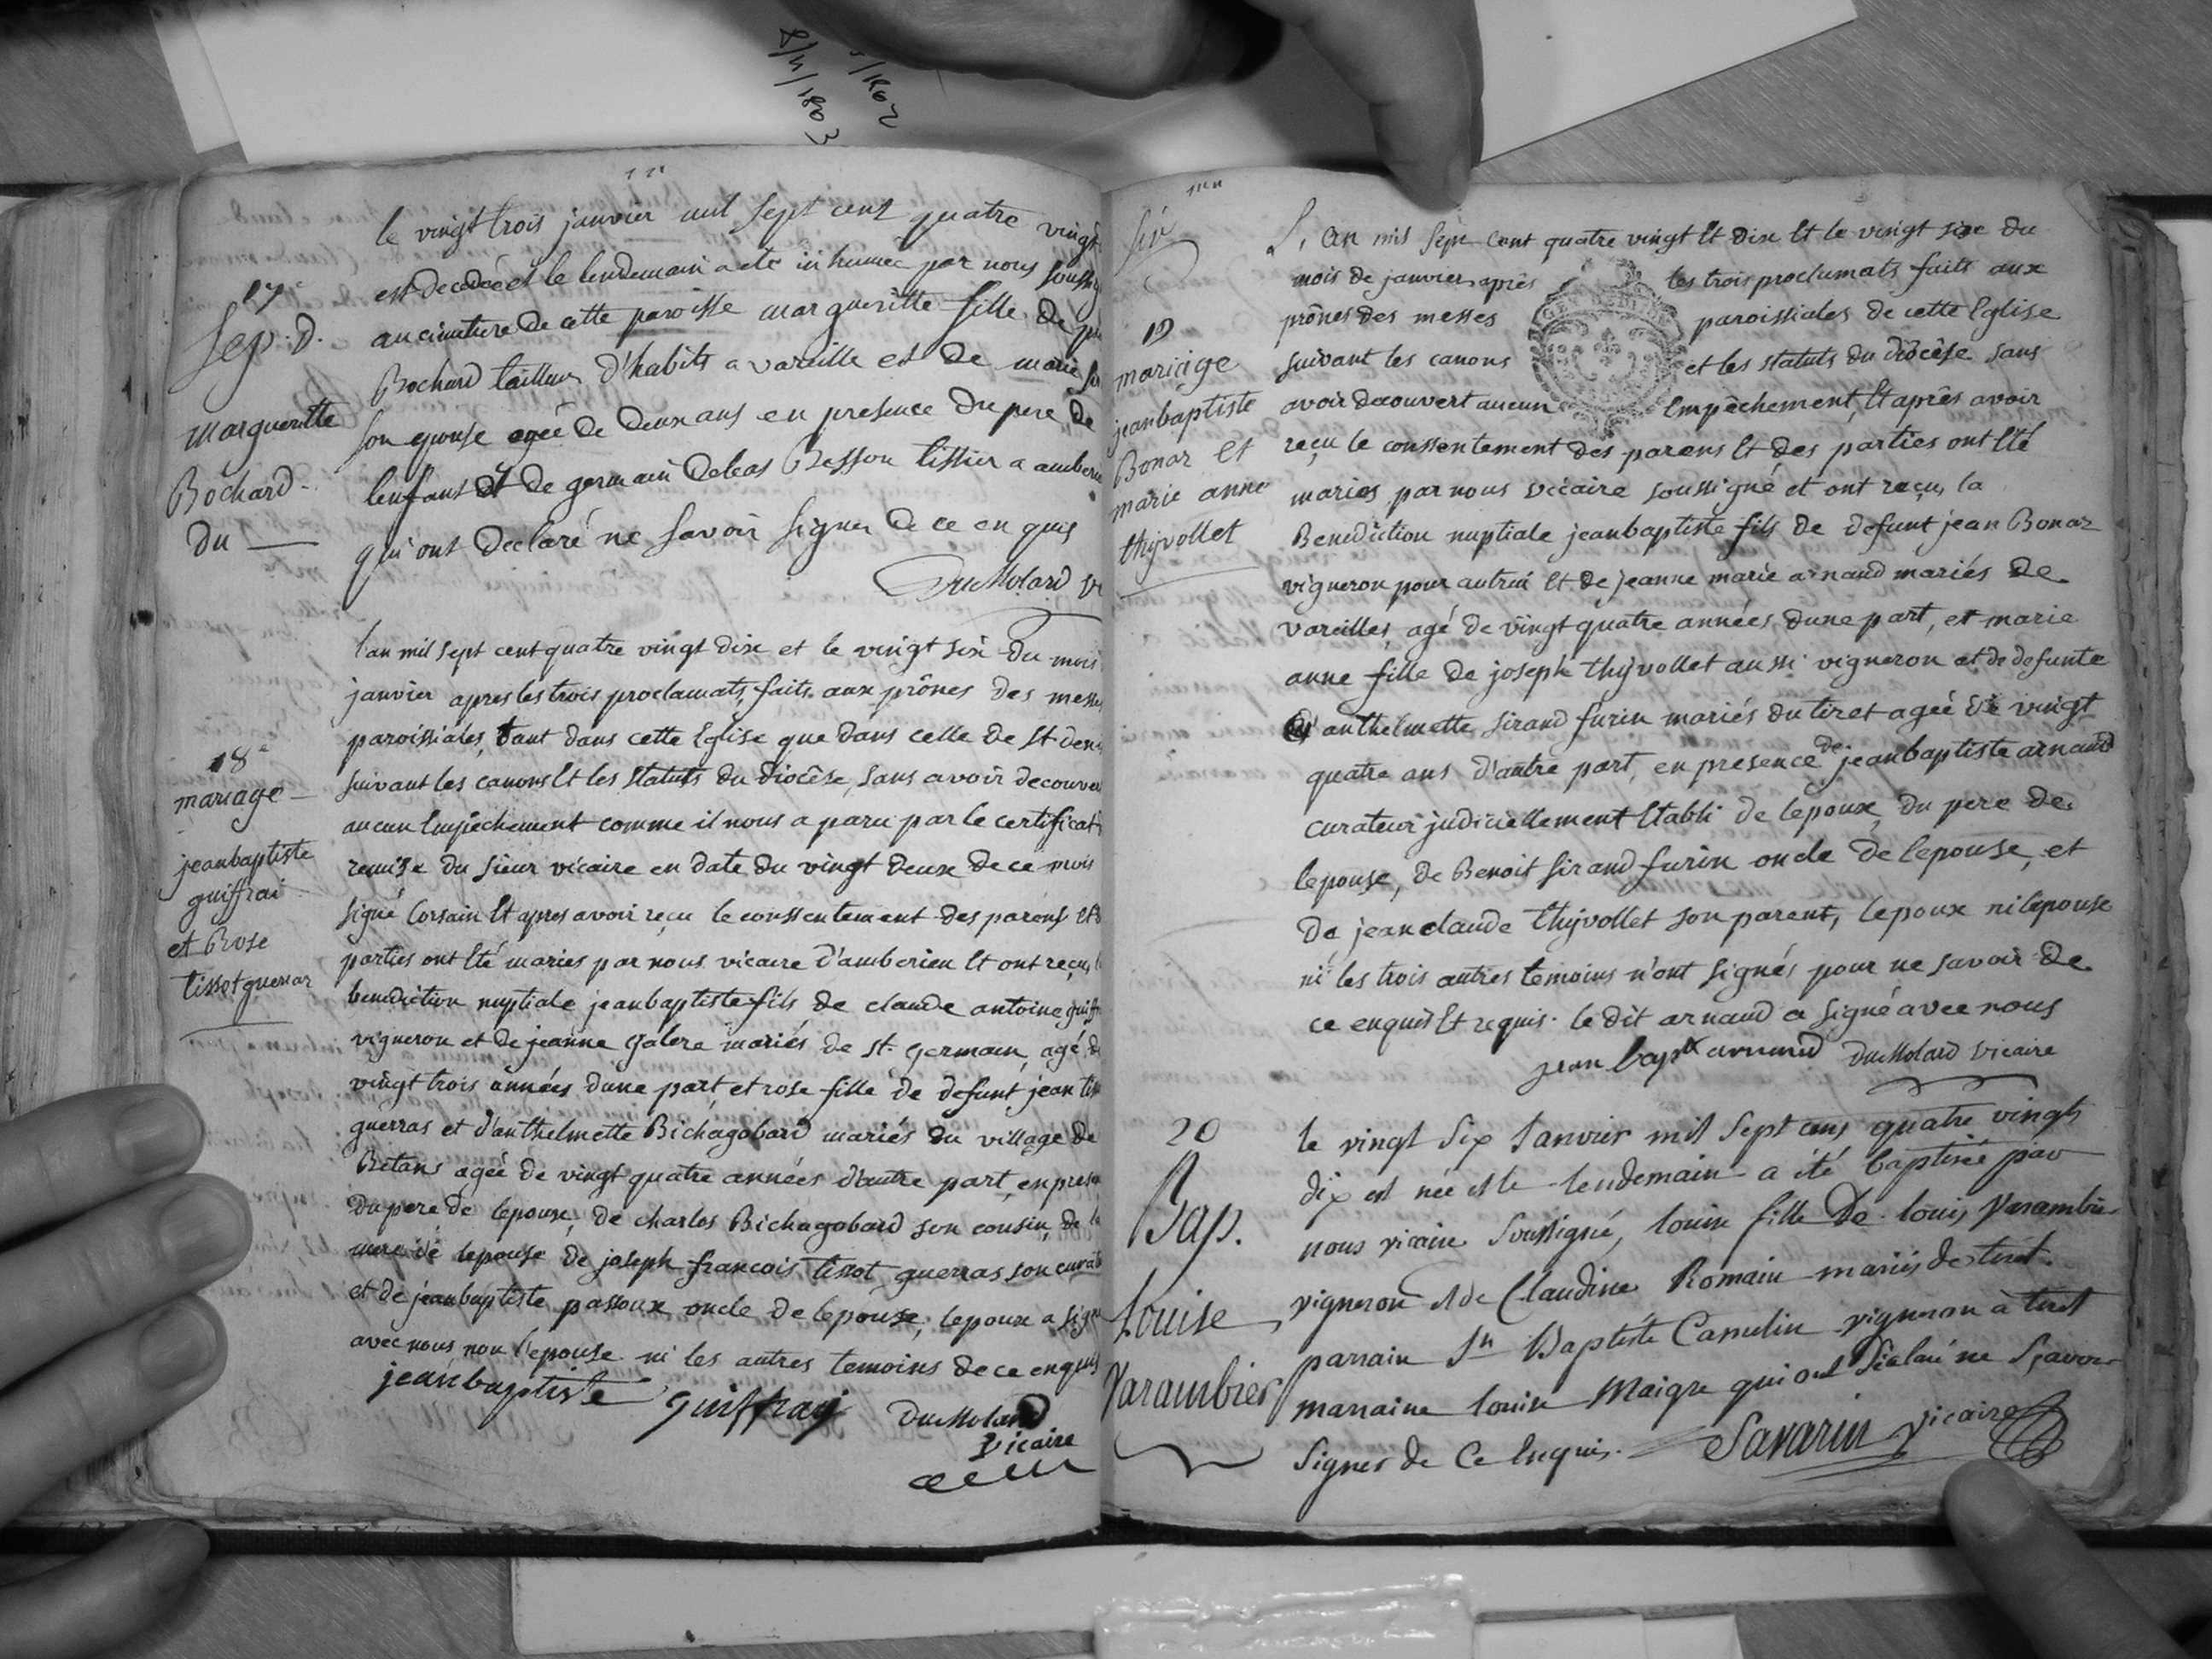 8/4/1803
/1802
le vingt trois janvier mil sept cent quatre vingt
est decedeé et le lendemain a eté inhumeé par nous soussig
au cimetiere de cette paroisse margueritte fille de
Bochard tailleur d'habits a vareille et de marie
son epouse ageé de deux ans en presence du pere de
lenfant et de germain debeas Besson tissier a amberi
qui ont declaré ne savoir signer de ce enquis
DuMolard vi
17e
Sep. D.
margueritte
Bochard
du
l'an mil sept cent quatre vingt dix et le vingt six du mois
janvier apres les trois proclamats, faits aux prônes des messes
paroissiales, tant dans cette Eglise que dans celle de st deni
suivant les canons Et les statuts du diocêse, sans avoir decouver
aucun Empêchement comme il nous a paru par le certificat
remise du sieur vicaire en date du vingt deux de ce mois
signé Corsain Et apres avoir reçu le conssentement des parens et d
parties ont Eté mariés par nous vicaire d'amberieu Et ont reçu l
benediction nuptiale jeanbaptiste fils de claude antoine guiff
vigneron et de jeanne galere mariés de st. germain, agé de
vingt trois années dune part, et rose fille de defunt jean tiss
guerras et d'anthelmette Bichagobard mariés du village de
Betans ageé de vingt quatre années d'autre part, en presen
du pere de lepoux, de charlos Bichagobard son cousin, de la
mere de lepouse de joseph francois tissot guerras son curat
et de jeanbaptiste passoux oncle de lepouse, lepoux a signé
avec nous non l'epouse ni les autres temoins de ce enquis
jeanbaptiste guiffray DuMolard
vicaire
18e
mariage
jeanbaptiste
guiffrai
et Rose
tissot guerrar
six
19
mariage
jeanbaptiste
Bonar Et
marie anne
thyvollet
L'an mil sept cent quatre vingt Et dix Et le vingt six du
mois de janvier après les trois proclamats faits aux
prônes des messes paroissiales de cette Eglise
suivant les canons et les statuts du diocêse sans
avoir decouvert aucun Empêchement, Et après avoir
reçu le conssentement des parens Et des parties ont Eté
mariés par nous vicaire soussigné et ont reçu la
Benediction nuptiale jeanbaptiste fils de defunt jean Bonar
vigneron pour autrui Et de jeanne marie arnaud mariés de
vareilles, agé de vingt quatre années dune part, et marie
anne fille de joseph thyvollet aussi vigneron et de defunte
d'anthelmette sirand furin mariés du tiret ageé de vingt
quatre ans d'autre part, en presence de jeanbaptiste arnaud
curateur judiciellement Etabli de lepoux, du pere de
lepouse, de Benoit sirand furin oncle de lepouse, et
de jean claude thyvollet son parent, lepoux ni lepouse
ni les trois autres temoins n'ont signés pour ne savoir de
ce enquis Et requis. le dit arnaud a signé avec nous
jean bapte arnaud DuMolard vicaire
20
Bap.
Louise
Varambier
le vingt Six Janvier mil Sept cens quatre vingts
dix est née et le lendemain a été baptisée par
nous vicaire Soussigné, louise fille de louis Varambier
vigneron et de Claudine Romain mariés de tiret.
parrain Jn Baptiste Cassulin vigneron à tiret
marraine louise Maigre qui ont déclaré ne Sçavoir
Signer de Ce Enquis. Savarin vicaire